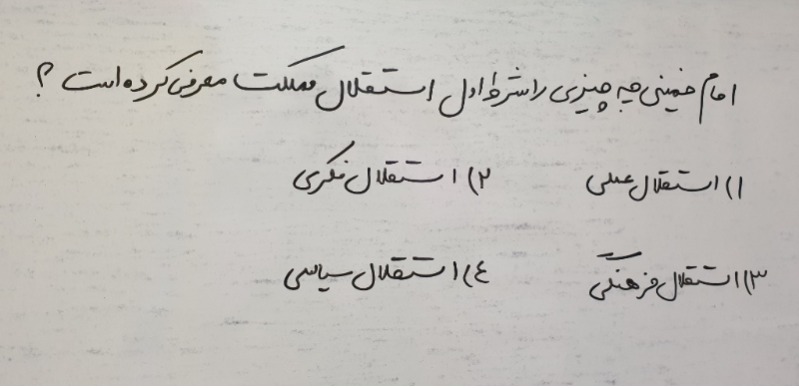 امام خمینی چه چیزی را شرط اول استقلال مملکت معرفی کرده است ؟
۱) استقلال عملی ۲) استقلال فکری
۳) استقلال فرهنگی ۴) استقلال سیاسی